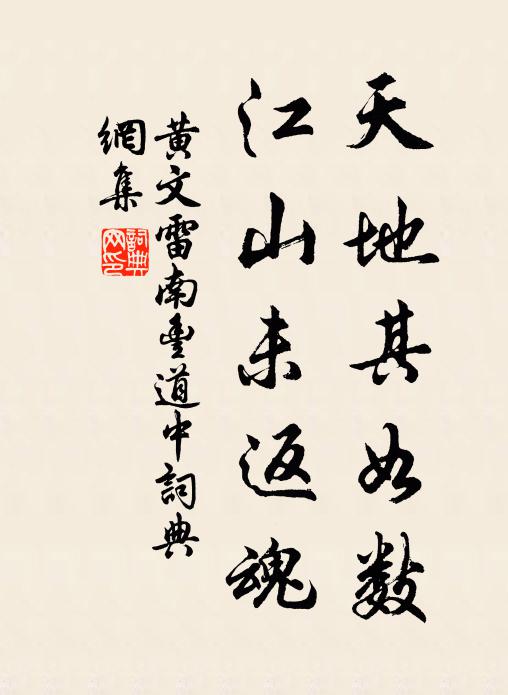 天地其如數
江山未返魂
黃文雷南豐道中詞典
網集
詞典網印